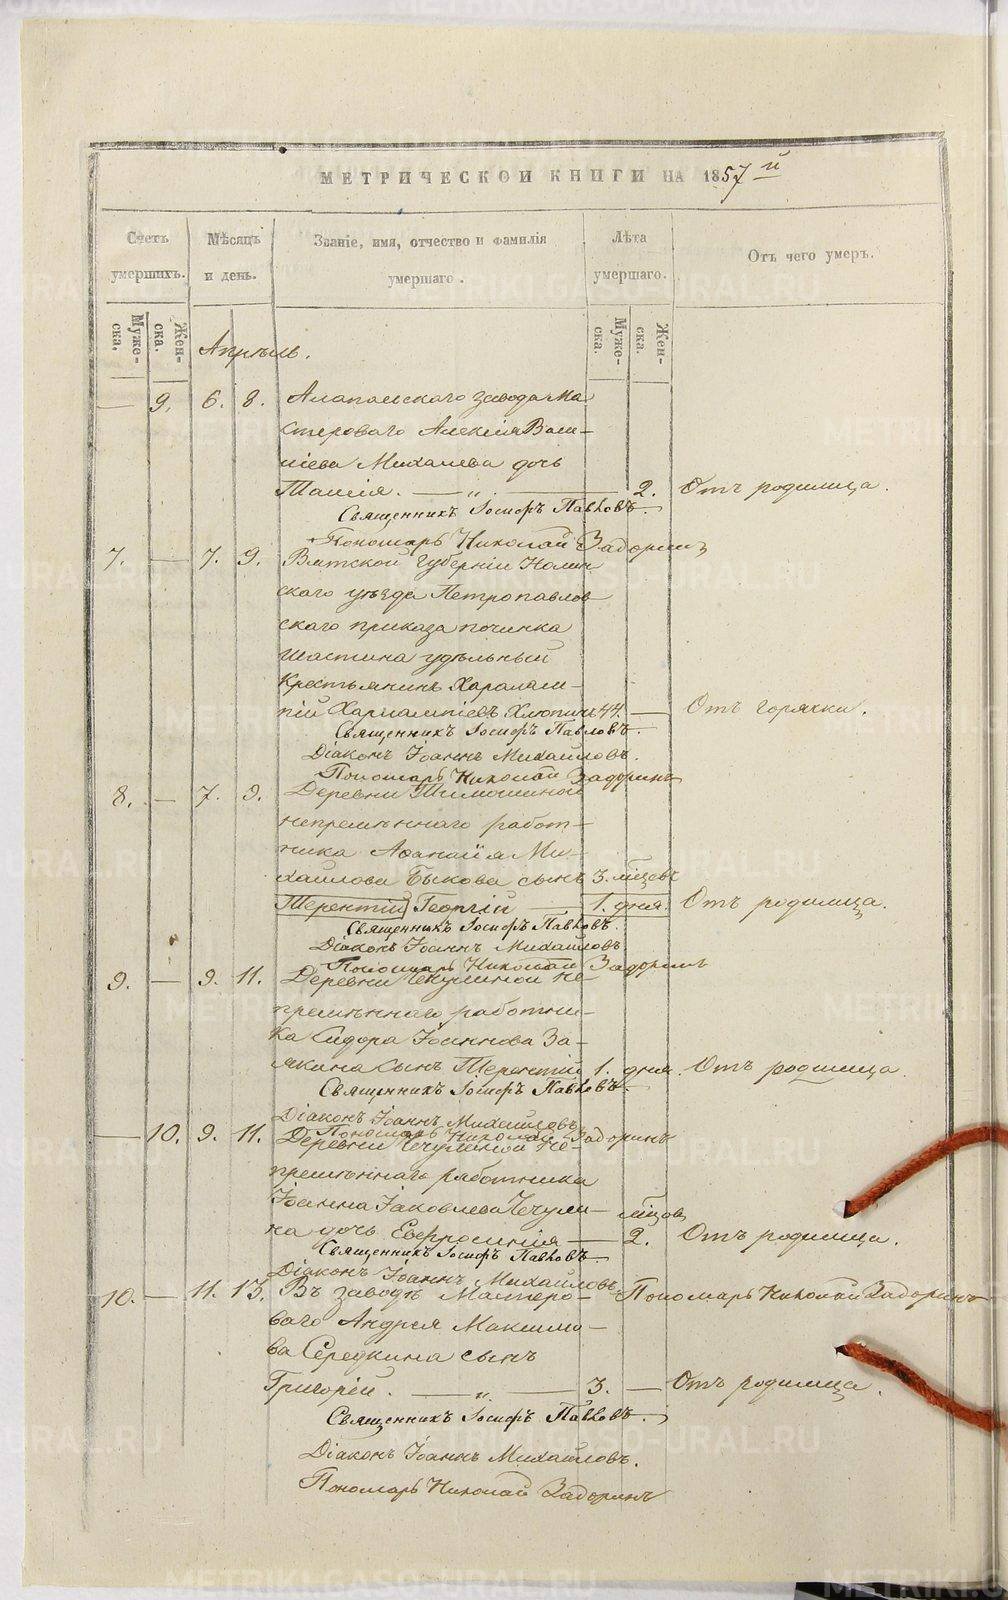 МЕТРИЧЕСКОЙ КНИГИ НА 1857й
Счетъ умершихъ.
Мѣсяцъ и день.
Званіе, имя, отчество и фамилія умершаго.
Лѣта умершаго.
Отъ чего умеръ.
Муже-ска.
Жен-ска.
Муже-ска.
Жен-ска.
Апрѣль.
— 9. 6. 8. Алапаевскаго завода ма
стероваго Алексія Васи-
ліева Михалева дочь
Таисія. — „ — 2. Отъ родимца.
Священникъ Іосифъ Павловъ.
Пономарь Николай Задоринъ
7. — 7. 9. Вятской губерніи Нолин
скаго уѣзда Петропавлов
скаго приказа починка
Шастина удѣльный
крестьянинъ Харалам-
пій Харлампіевъ Хлюпинъ 44. — Отъ горячки.
Священникъ Іосифъ Павловъ.
Діаконъ Іоаннъ Михайловъ.
Пономарь Николай Задоринъ
8. — 7. 9. Деревни Тимошиной
непремѣннаго работ-
ника Аѳанасія Ми-
хайлова Быкова сынъ 3. мѣсяцевъ
Терентій Георгій — 1. дня. Отъ родимца.
Священникъ Іосифъ Павловъ.
Діаконъ Іоаннъ Михайловъ
Пономарь Николай Задоринъ
9. — 9. 11. Деревни Чечулиной не-
премѣннаго работни-
ка Сидора Іоаннова За-
якина сынъ Терентій 1. дня. Отъ родимца
Священникъ Іосифъ Павловъ.
Діаконъ Іоаннъ Михайловъ
Пономарь Николай Задоринъ
— 10. 9. 11. Деревни Чечулиной не-
премѣннаго работника
Іоанна Іаковлева Чечули- мѣсцов
на дочь Евфросинія — 2. Отъ родимца.
Священникъ Іосифъ Павловъ.
Діаконъ Іоаннъ Михайловъ
Пономарь Николай Задоринъ
10. — 11. 13. Въ заводѣ мастеро-
ваго Андрея Максимо-
ва Середкина сынъ
Григорій. — „ — 3. — Отъ родимца.
Священникъ Іосифъ Павловъ.
Діаконъ Іоаннъ Михайловъ.
Пономарь Николай Задоринъ
METRIKI.GASO-URAL.RU